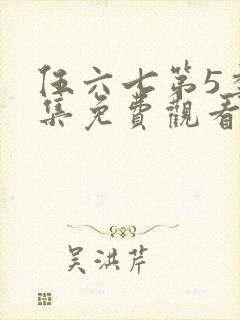 伍六七第5季
集免費觀看
吴洪芹